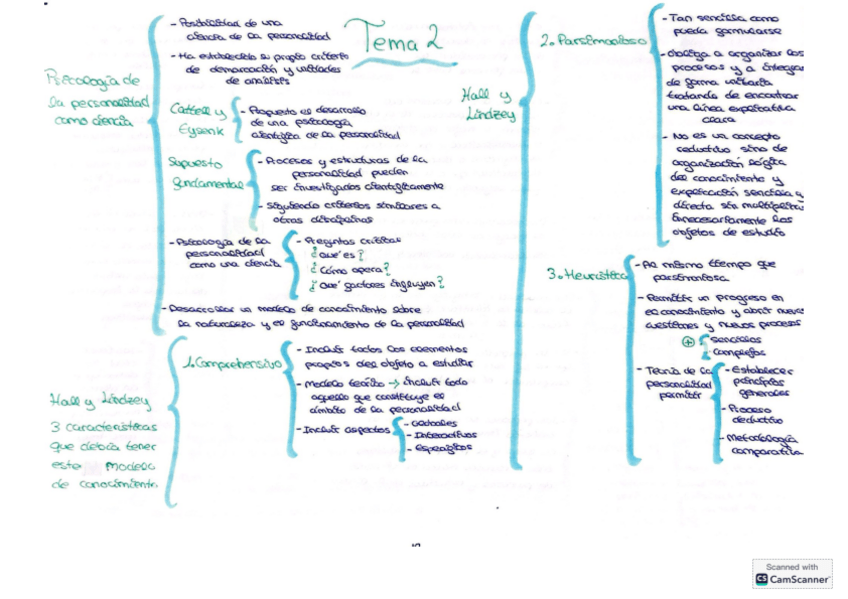 Tema 2
Psicología de
la personalidad
como ciencia
- Posibilidad de una
ciencia de la personalidad
- Ha establecido su propio criterio
de demarcación y unidades
de análisis
Cattell y
Eysenk
- Propuesto el desarrollo
de una psicología
científica de la personalidad
Supuesto
fundamental
- Procesos y estructuras de la
personalidad pueden
ser investigados científicamente
- Siguiendo criterios similares a
otras disciplinas
- Psicología de la
personalidad
como una ciencia
- Preguntas críticas
¿Qué es?
¿Cómo opera?
¿Qué factores influyen?
- Desarrollar un modelo de conocimiento sobre
la naturaleza y el funcionamiento de la personalidad
Hall y Lindzey
3 características
que debía tener
este modelo
de conocimiento
1. Comprehensivo
- Incluir todos los elementos
propios del objeto a estudiar
- Modelo teórico → incluir todo
aquello que constituye el
ámbito de la personalidad
- Incluir aspectos
- Globales
- Interactivos
- Específicos
Hall y
Lindzey
2. Parsimonioso
- Tan sencilla como
pueda formularse
- Obliga a organizar los
procesos y a integrar
de forma unitaria
tratando de encontrar
una línea explicativa
clara
- No es un concepto
reductivo sino de
organización lógica
del conocimiento y
explicación sencilla y
directa sin multiplicar
innecesariamente los
objetos de estudio
3. Heurística
- Al mismo tiempo que
parsimoniosa
- Permitir un progreso en
el conocimiento y abrir nuevas
cuestiones y nuevos procesos
+ sencillos
complejos
- Teoría de la
personalidad
permitir
- Establecer
principios
generales
- Proceso
deductivo
- Metodología
comparativa
Scanned with
CS CamScanner